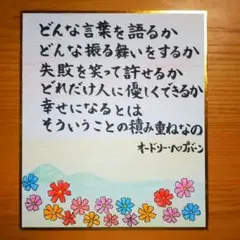 どんな言葉を語るか
どんな振る舞いをするか
失敗を笑って許せるか
どれだけ人に優しくできるか
幸せになるとは
そういうことの積み重ねなの
オードリー・ヘップバーン